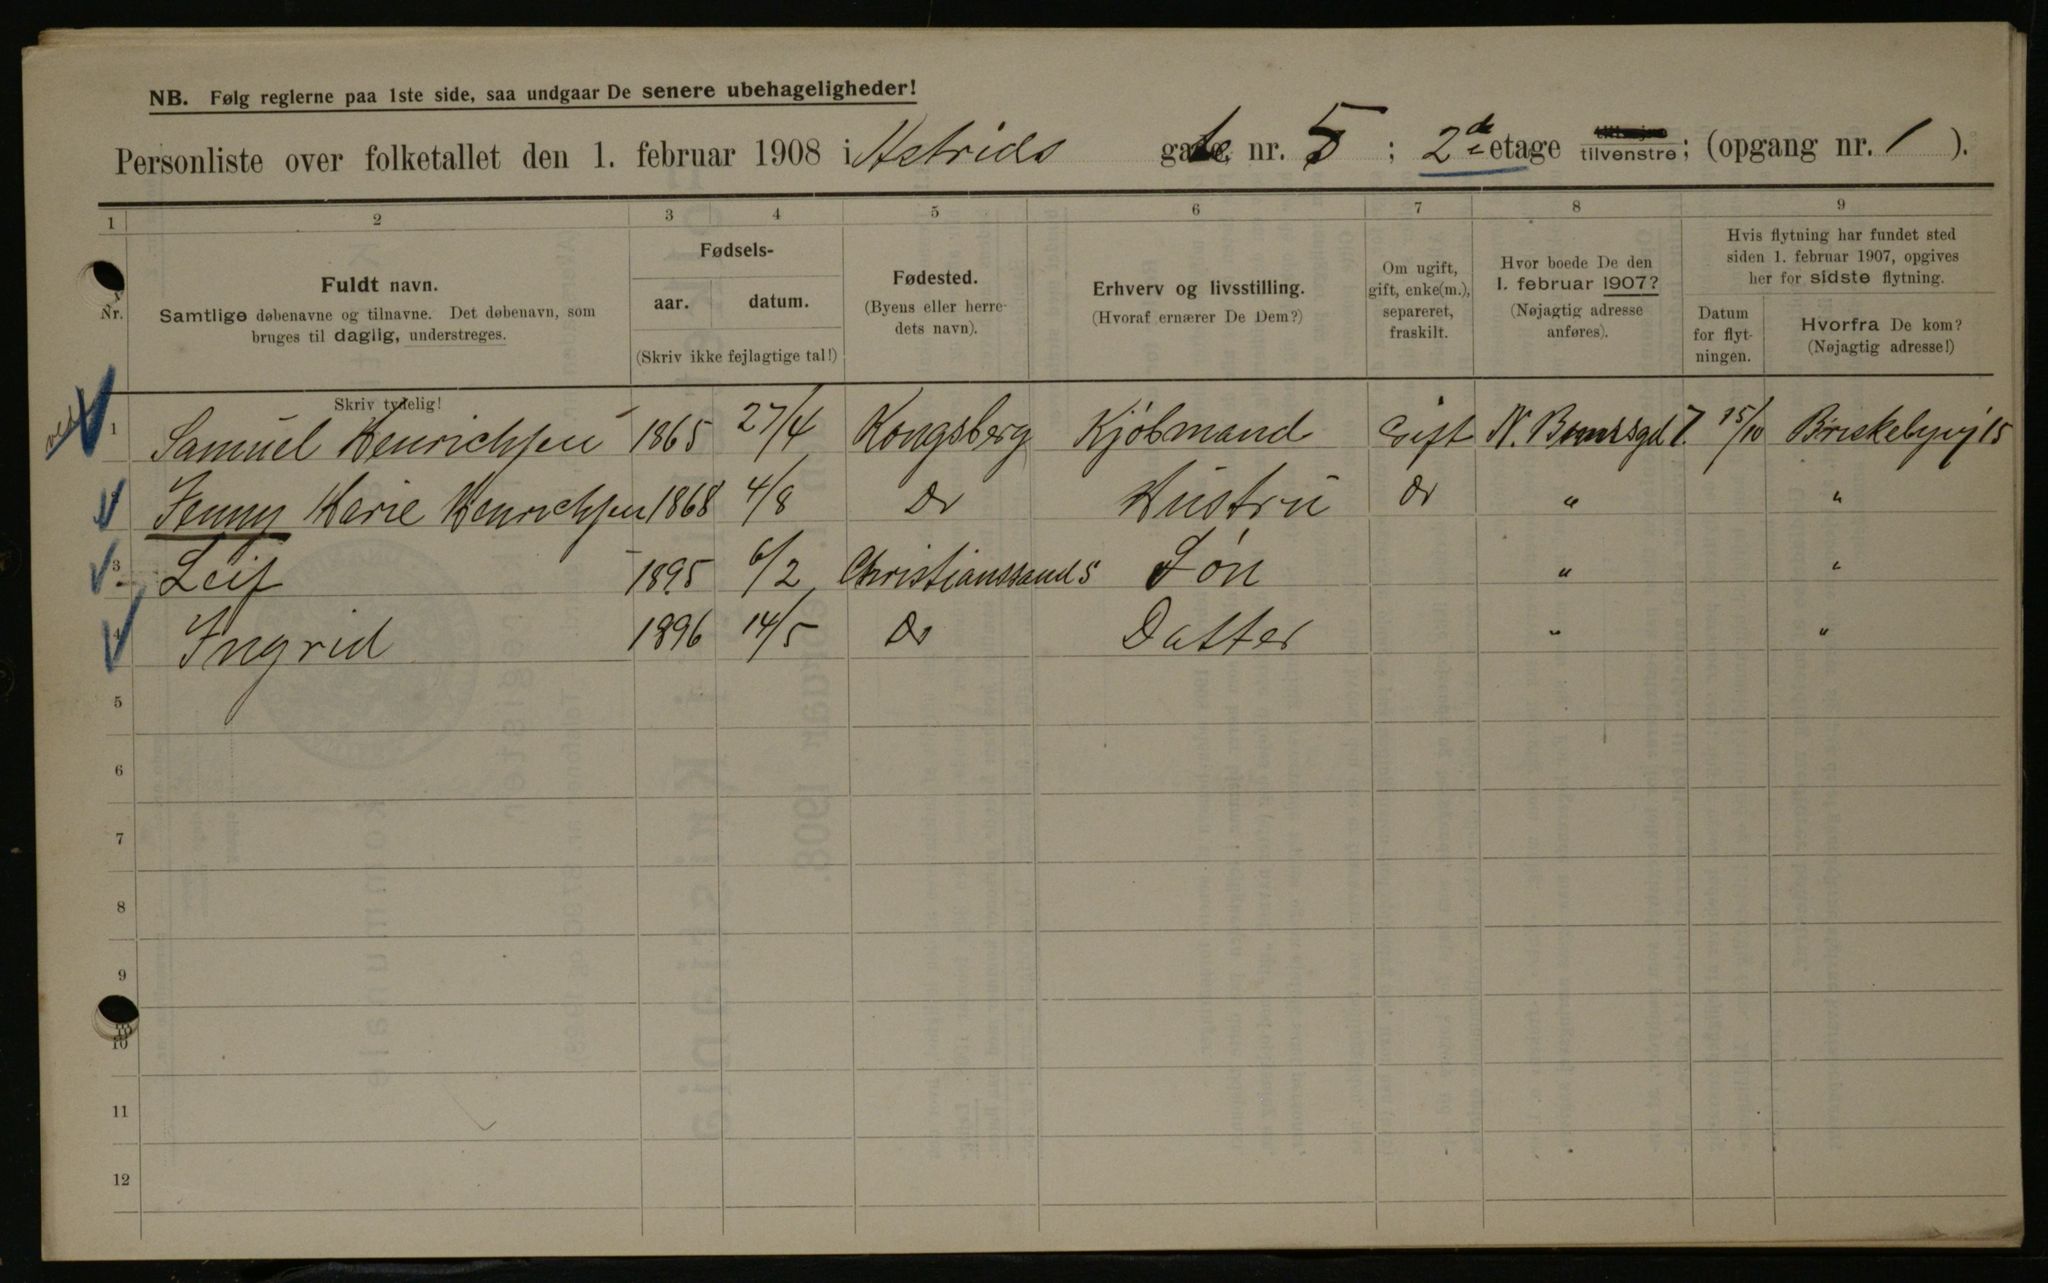 NB. Følg reglerne paa 1ste side, saa undgaar De senere ubehageligheder!
Personliste over folketallet den 1. februar 1908 i Astrids gate nr. 5 ; 2de etage tilvenstre; (opgang nr. 1 ).
1 2 3 4 5 6 7 8 9
Nr.
Fuldt navn.
Samtlige døbenavne og tilnavne. Det døbenavn, som
bruges til daglig, understreges.
Skriv tydelig!
Fødsels-
aar. datum.
(Skriv ikke fejlagtige tal!)
Fødested.
(Byens eller herre-
dets navn).
Erhverv og livsstilling.
(Hvoraf ernærer De Dem?)
Om ugift,
gift, enke(m.),
separeret,
fraskilt.
Hvor boede De den
1. februar 1907?
(Nøjagtig adresse
anføres).
Hvis flytning har fundet sted
siden 1. februar 1907, opgives
her for sidste flytning.
Datum
for flyt-
ningen.
Hvorfra De kom?
(Nøjagtig adresse!)
1 Samuel Henrichsen 1865 27/4 Kongsberg Kjöbmand Gift 7. 15/10 Briskebyvj 15
2 Jenny Marie Henrichsen 1868 4/8 Do Hustru Do " "
3 Leif 1895 6/2 Christianssands Søn " "
4 Ingrid 1896 14/5 Do Datter " "
5
6
7
8
9
10
11
12